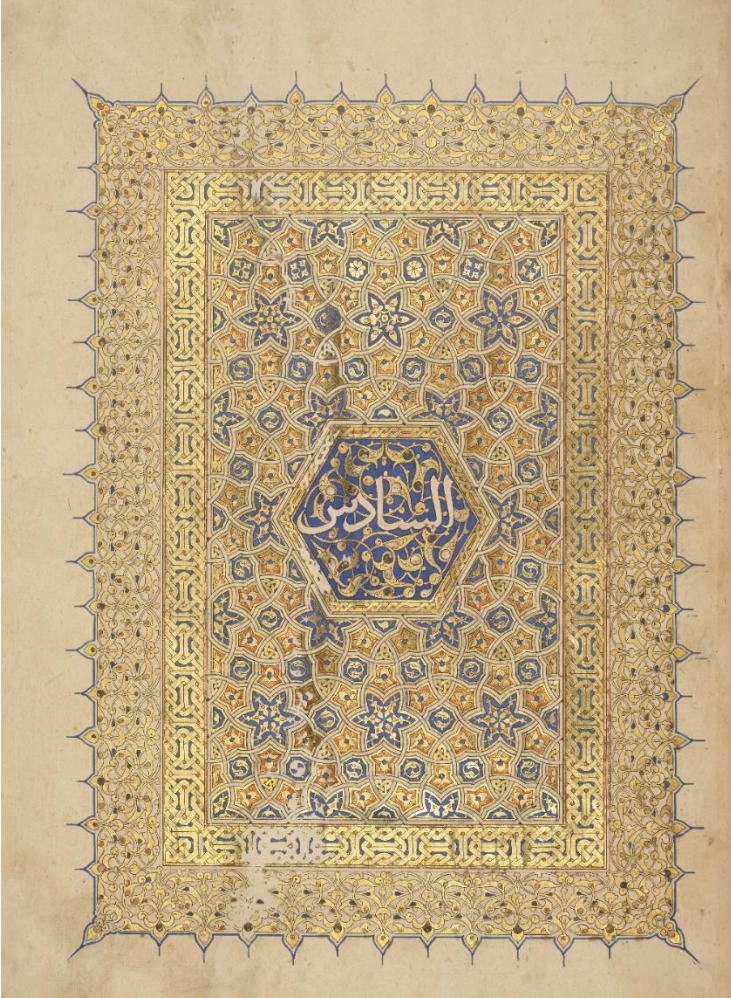 السادس